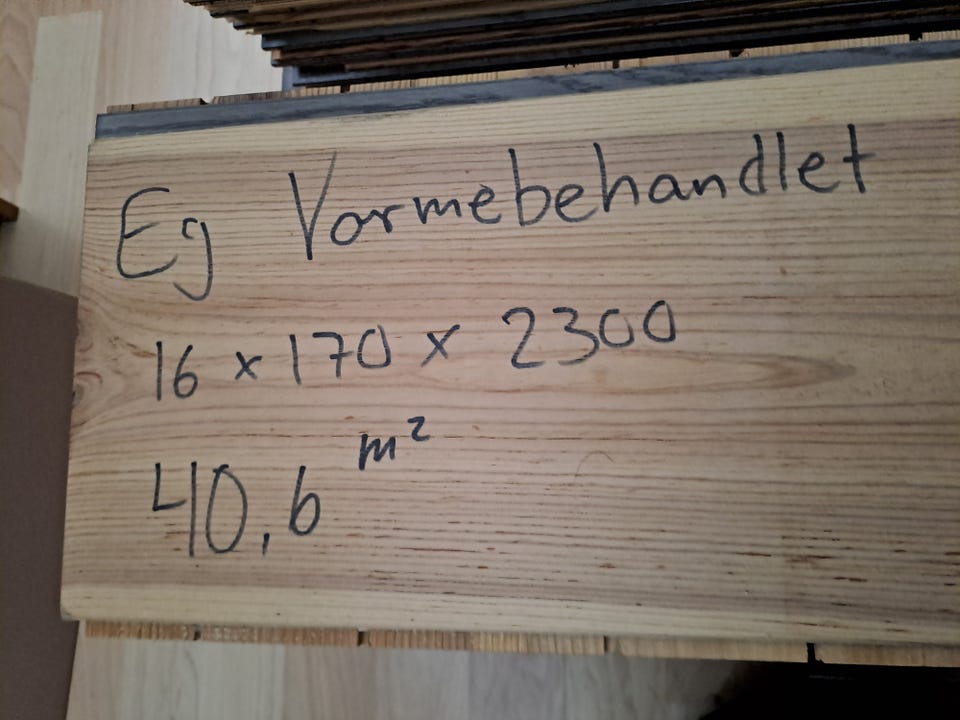 Eg Varmebehandlet
16 x 170 x 2300
40,6 m²